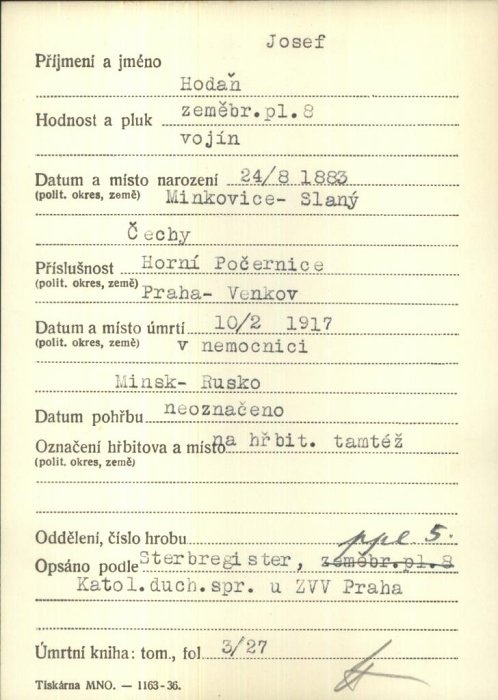 Josef
Příjmení a jméno
Hodaň
Hodnost a pluk zeměbr.pl.8
vojín
Datum a místo narození 24/8 1883
(polit. okres, země) Minkovice- Slaný
Čechy
Příslušnost Horní Počernice
(polit. okres, země) Praha- Venkov
Datum a místo úmrtí 10/2 1917
(polit. okres, země) v nemocnici
Minsk- Rusko
Datum pohřbu neoznačeno
Označení hřbitova a místo na hřbit. tamtéž
(polit. okres, země)
Oddělení, číslo hrobu ppl 5.
Opsáno podle Sterbregister, zeměbr.pl.8
Katol.duch.spr. u ZVV Praha
Úmrtní kniha: tom., fol 3/27
Tiskárna MNO. — 1163-36.